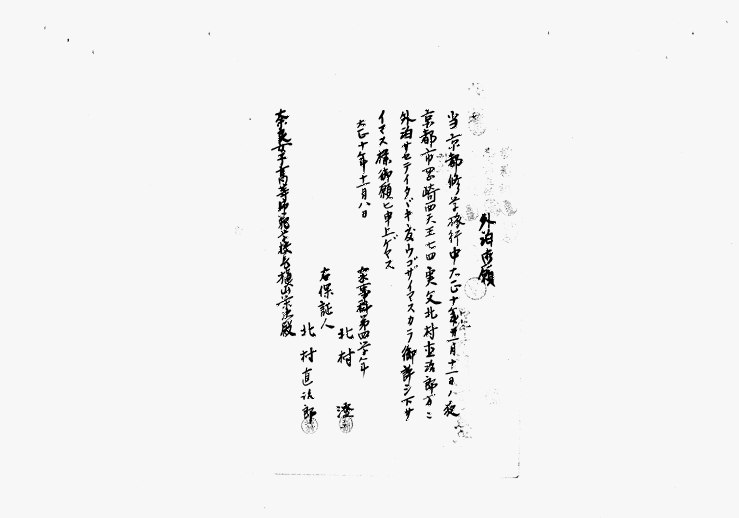 外泊御願
当京都修学旅行中大正十年十一月十一日ハ夜
京都市岡崎西天王七四実父北村直治郎方ニ
外泊サセテイタダキ度ウゴザイマスカラ御許シ下サ
イマス様御願ヒ申上ゲマス
大正十年十一月八日
家事科第四学年
北村 澄
右保証人
北村直治郎
奈良女子高等師範学校長槙山栄次殿